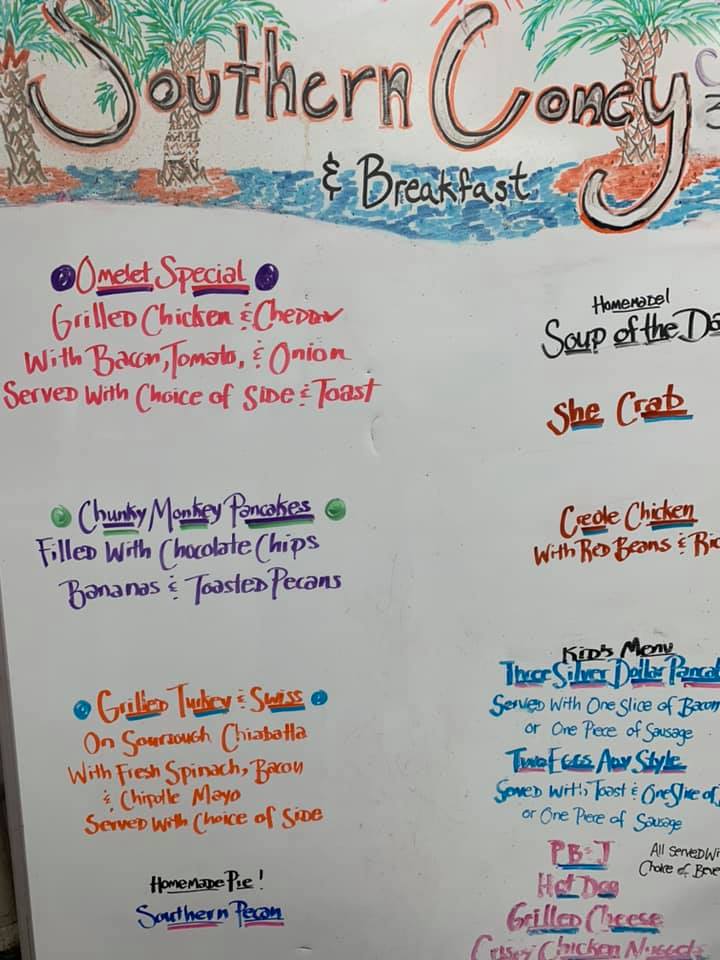 Southern Coney
& Breakfast
Omelet Special
Grilled Chicken & Cheddar
With Bacon, Tomato, & Onion
Served With Choice of Side & Toast
Chunky Monkey Pancakes
Filled With Chocolate Chips
Bananas & Toasted Pecans
Grilled Turkey & Swiss
On Soursough Chiabatta
With Fresh Spinach, Bacon
& Chipotle Mayo
Served With Choice of Side
Homemade Pie!
Southern Pecan
Homemade!
Soup of the Da
She Crab
Creole Chicken
With Red Beans & Ric
Kid's Menu
Three Silver Dollar Pancak
Served With One Slice of Bacon
or One Piece of Sausage
Two Eggs Any Style
Served With Toast & One Slice of
or One Piece of Sausage
PB&J
All Served Wi
Choice of Beve
Hot Dog
Grilled Cheese
Crispy Chicken Nuggets